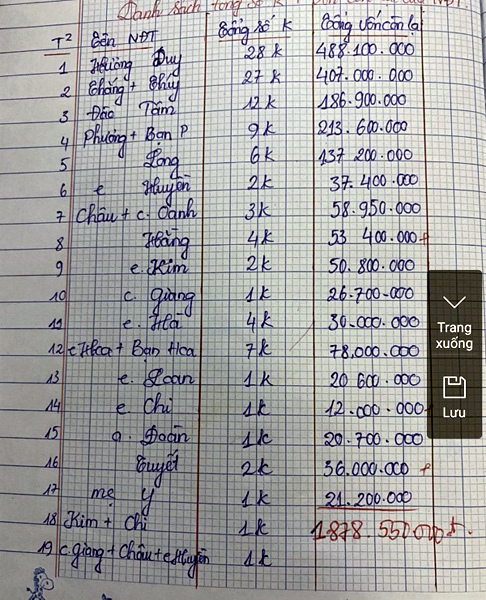 Danh sách tổng số K
T² Tên NĐT Tổng số K Tổng vốn còn lại
1 Hương Duy 28 K 488.100.000
2 Thắng + Thúy 27 K 407.000.000
3 Đào Tâm 12 K 186.900.000
4 Phương + Bạn P 9 K 213.600.000
5 Long 6 K 137 200.000
6 e Huyền 2 K 37.400.000
7 Châu + c. Oanh 3 K 58.950.000
8 Hằng 4 K 53 400.000
9 e. Kim 2 K 50.800.000
10 c. Giang 1 K 26.700.000
11 e. Hà 4 K 30.000.000
12 c Hoa + Bạn Hoa 7 K 78.000.000
13 e. Loan 1 K 20 600.000
14 e. Chi 1 K 12.000.000
15 a. Đoàn 1 K 20.700.000
16 Tuyết 2 K 36.000.000
17 mẹ Y 1 K 21.200.000
18 Kim + Chi 1 K 1878.550000
19 c. Giang + Châu + e Huyền 1 K
Trang
xuống
Lưu